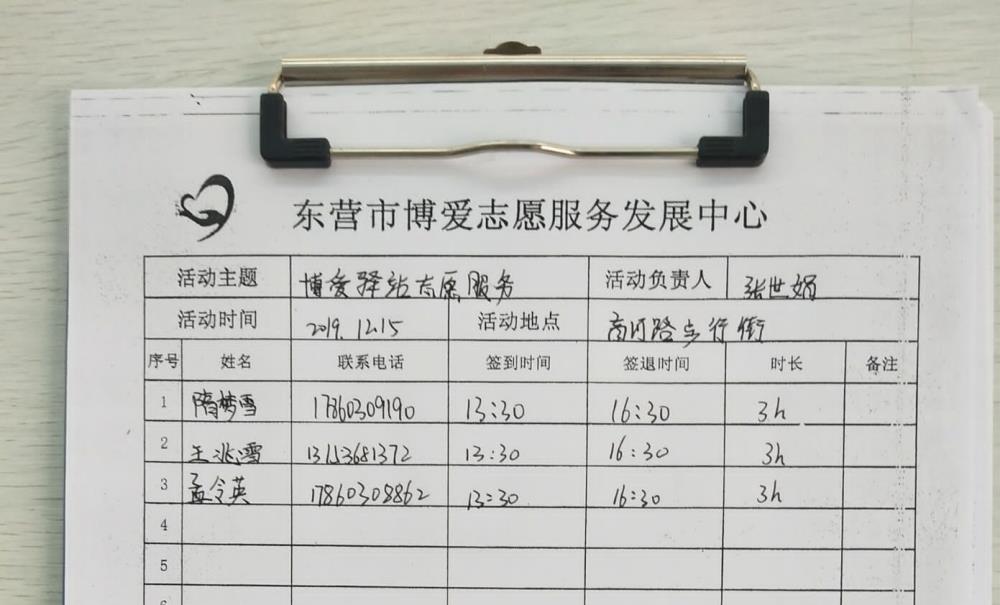 东营市博爱志愿服务发展中心
活动主题 博爱驿站志愿服务 活动负责人 张世娟
活动时间 2019.12.15 活动地点 商河路步行街
序号 姓名 联系电话 签到时间 签退时间 时长 备注
1 隋梦雪 17860309190 13:30 16:30 3h
2 王兆雪 13:30 16:30 3h
3 孟令英 17860308862 13:30 16:30 3h
4
5